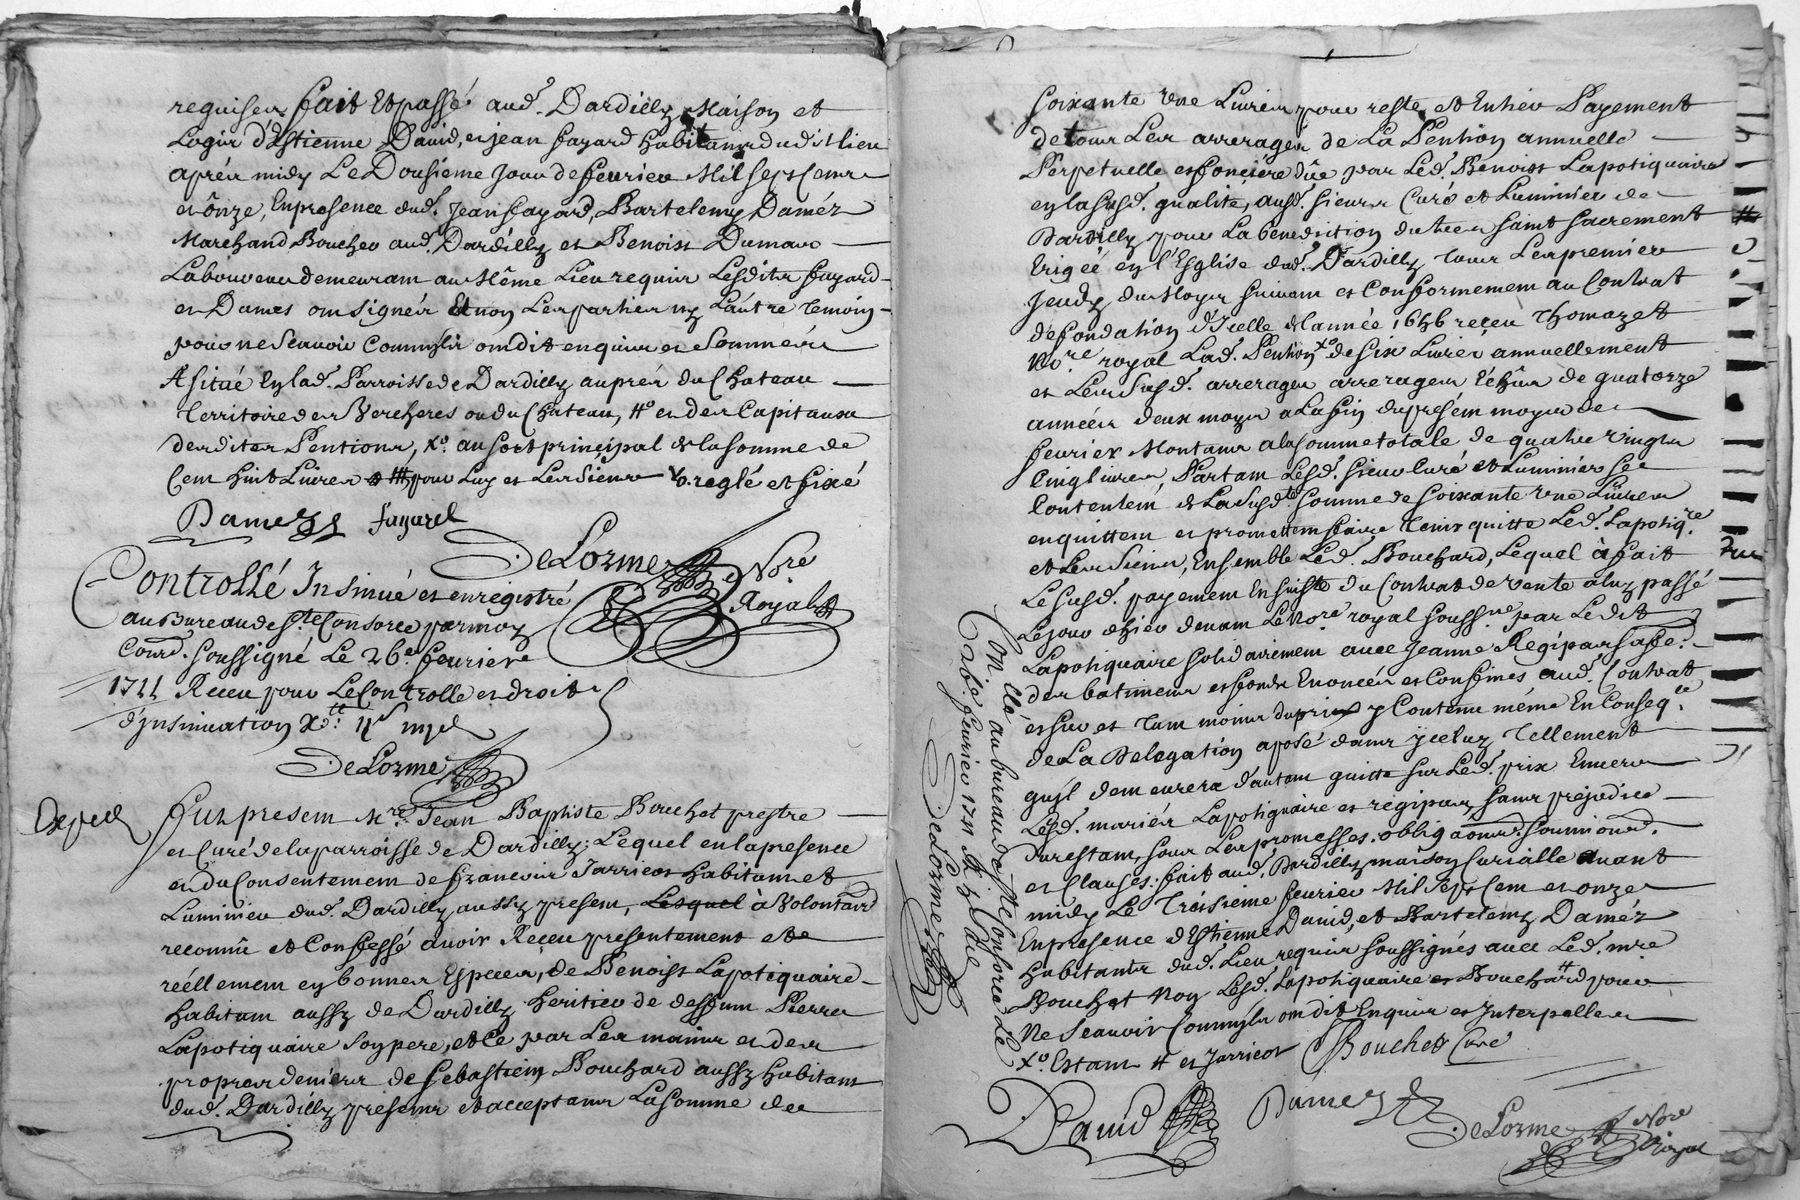 requises fait et passé aud. Dardilly Maison et
Logis d'Estienne David, et jean fayard habitans dudit lieu
aprés midy Le Dousieme Jour de feuvrier Mil sept Cents
et ônze, En presence dud. Jean fayard, Bartelemy Daméz
Marchand Boucher aud. Dardilly et Benoist Dumas
Laboureur demeurant au Même Lieu requis Lesdits fayard
et Dames ont signés et non Les parties ny L'autre temoin
pour ne Scavoir Comm'ils ont dit enquis et Sommés
A situé En lad. Parroisse de Dardilly auprés du Chateau
Territoire des Vercheres ou du Chateau, # et des Capitaux
desdites Pentions, Xo. au sort principal de la somme de
Cent huit Livres pour Luy et Les Siens Vo. reglé et fixé
Damez fayard
DeLorme Nore
Royal
Controllé Insinué et enregistré
au Bureau de Ste Consorce par moy
Comd. soussigné Le 26e. feuvrier
1711 Receu pour Le Controlle et droit
d'Insinuation
DeLorme
Exped
fut present Mre. Jean Baptiste Bouchet prestre
et Curé de la parroisse de Dardilly; Lequel en la presence
et du Consentement de francois Jarricot habitant et
Luminier dud. Dardilly aussy present, Lesquel à Volontaire
reconnû et Confessé avoir Receu presentement et
réellement en bonnes Especes, de Benoist Lapotiquaire
habitant aussy de Dardilly heritier de deffunt Pierre
Lapotiquaire son pere, et Ce par Les mains et des
propres deniers de Sebastien Bouchard aussy habitant
dud. Dardilly present et acceptant La somme de
soixante Une Livres pour reste et Entier Payement
de tous Les arrerages de La Pention annuelle
Perpetuelle et fonciere dûe par Led. Benoist Lapotiquaire
en la susd. qualité, ausd. sieurs Curé et Luminier de
Dardilly pour La benediction du tres saint sacrement
Erigéé en l'Eglise dud. Dardilly tous Les premiers
Jeudy du Moys suivant et Conformement au Contrat
de fondation d'Icelle de l'année 1656 receu Thomazet
No.re royal Lad. Pention Xo de six Livres annuellement
et Les susd. arrerages arrerages Echûs de quatorze
années deux moys a La fin du present moys de
feuvrier Montant a la somme totale de quatre Vingts
Cinq livres, Partant Lesd. sieur Curé et Luminier se
Contentent de La susd.te somme de soixante Une Livres
en quittent et promettent faire tenir quitte Led. Lapotiq.re
et Les Siens, Ensemble Led. Bouchard, Lequel à fait
Le susd. payement En suitte du Contrat de Vente a luy passé
Le jour d'hier devant Le Nore royal souss.né par Ledit
Lapotiquaire solidairement avec Jeanne Regipas sa fe.
des batimens et fonds Enoncés et Confinés aud. Contrat
et sur et tant moins du prix y Contenu même En Conseq.ce
de La Delegation aposé dans Iceluy Tellement
qu'il demeurera d'autant quitte sur Led. prix Envers
Lesd. mariés Lapotiquaire et regipas, sans préjudice
du restant, sous Les promesses, obligaons. soumions.
et Clauses; fait aud. Dardilly maison Curialle avant
midy Le Troisieme feuvrier Mil Sept Cent et onze
En presence d'Estienne David, et Bartelemy Daméz
habitants dud. Lieu requis soussignés avec Led. mre
Bouchet Non Lesd. Lapotiquaire et Bouchard # pour
Ne Scavoir Comm'ils ont dit Enquis et Interpellés
Xo. Estant # et Jarricot Bouchet Curé
David Damez
DeLorme Nore
Royal
Con.llé au bureau de Ste Consorce Le
26e. feuvrier 1711
DeLorme